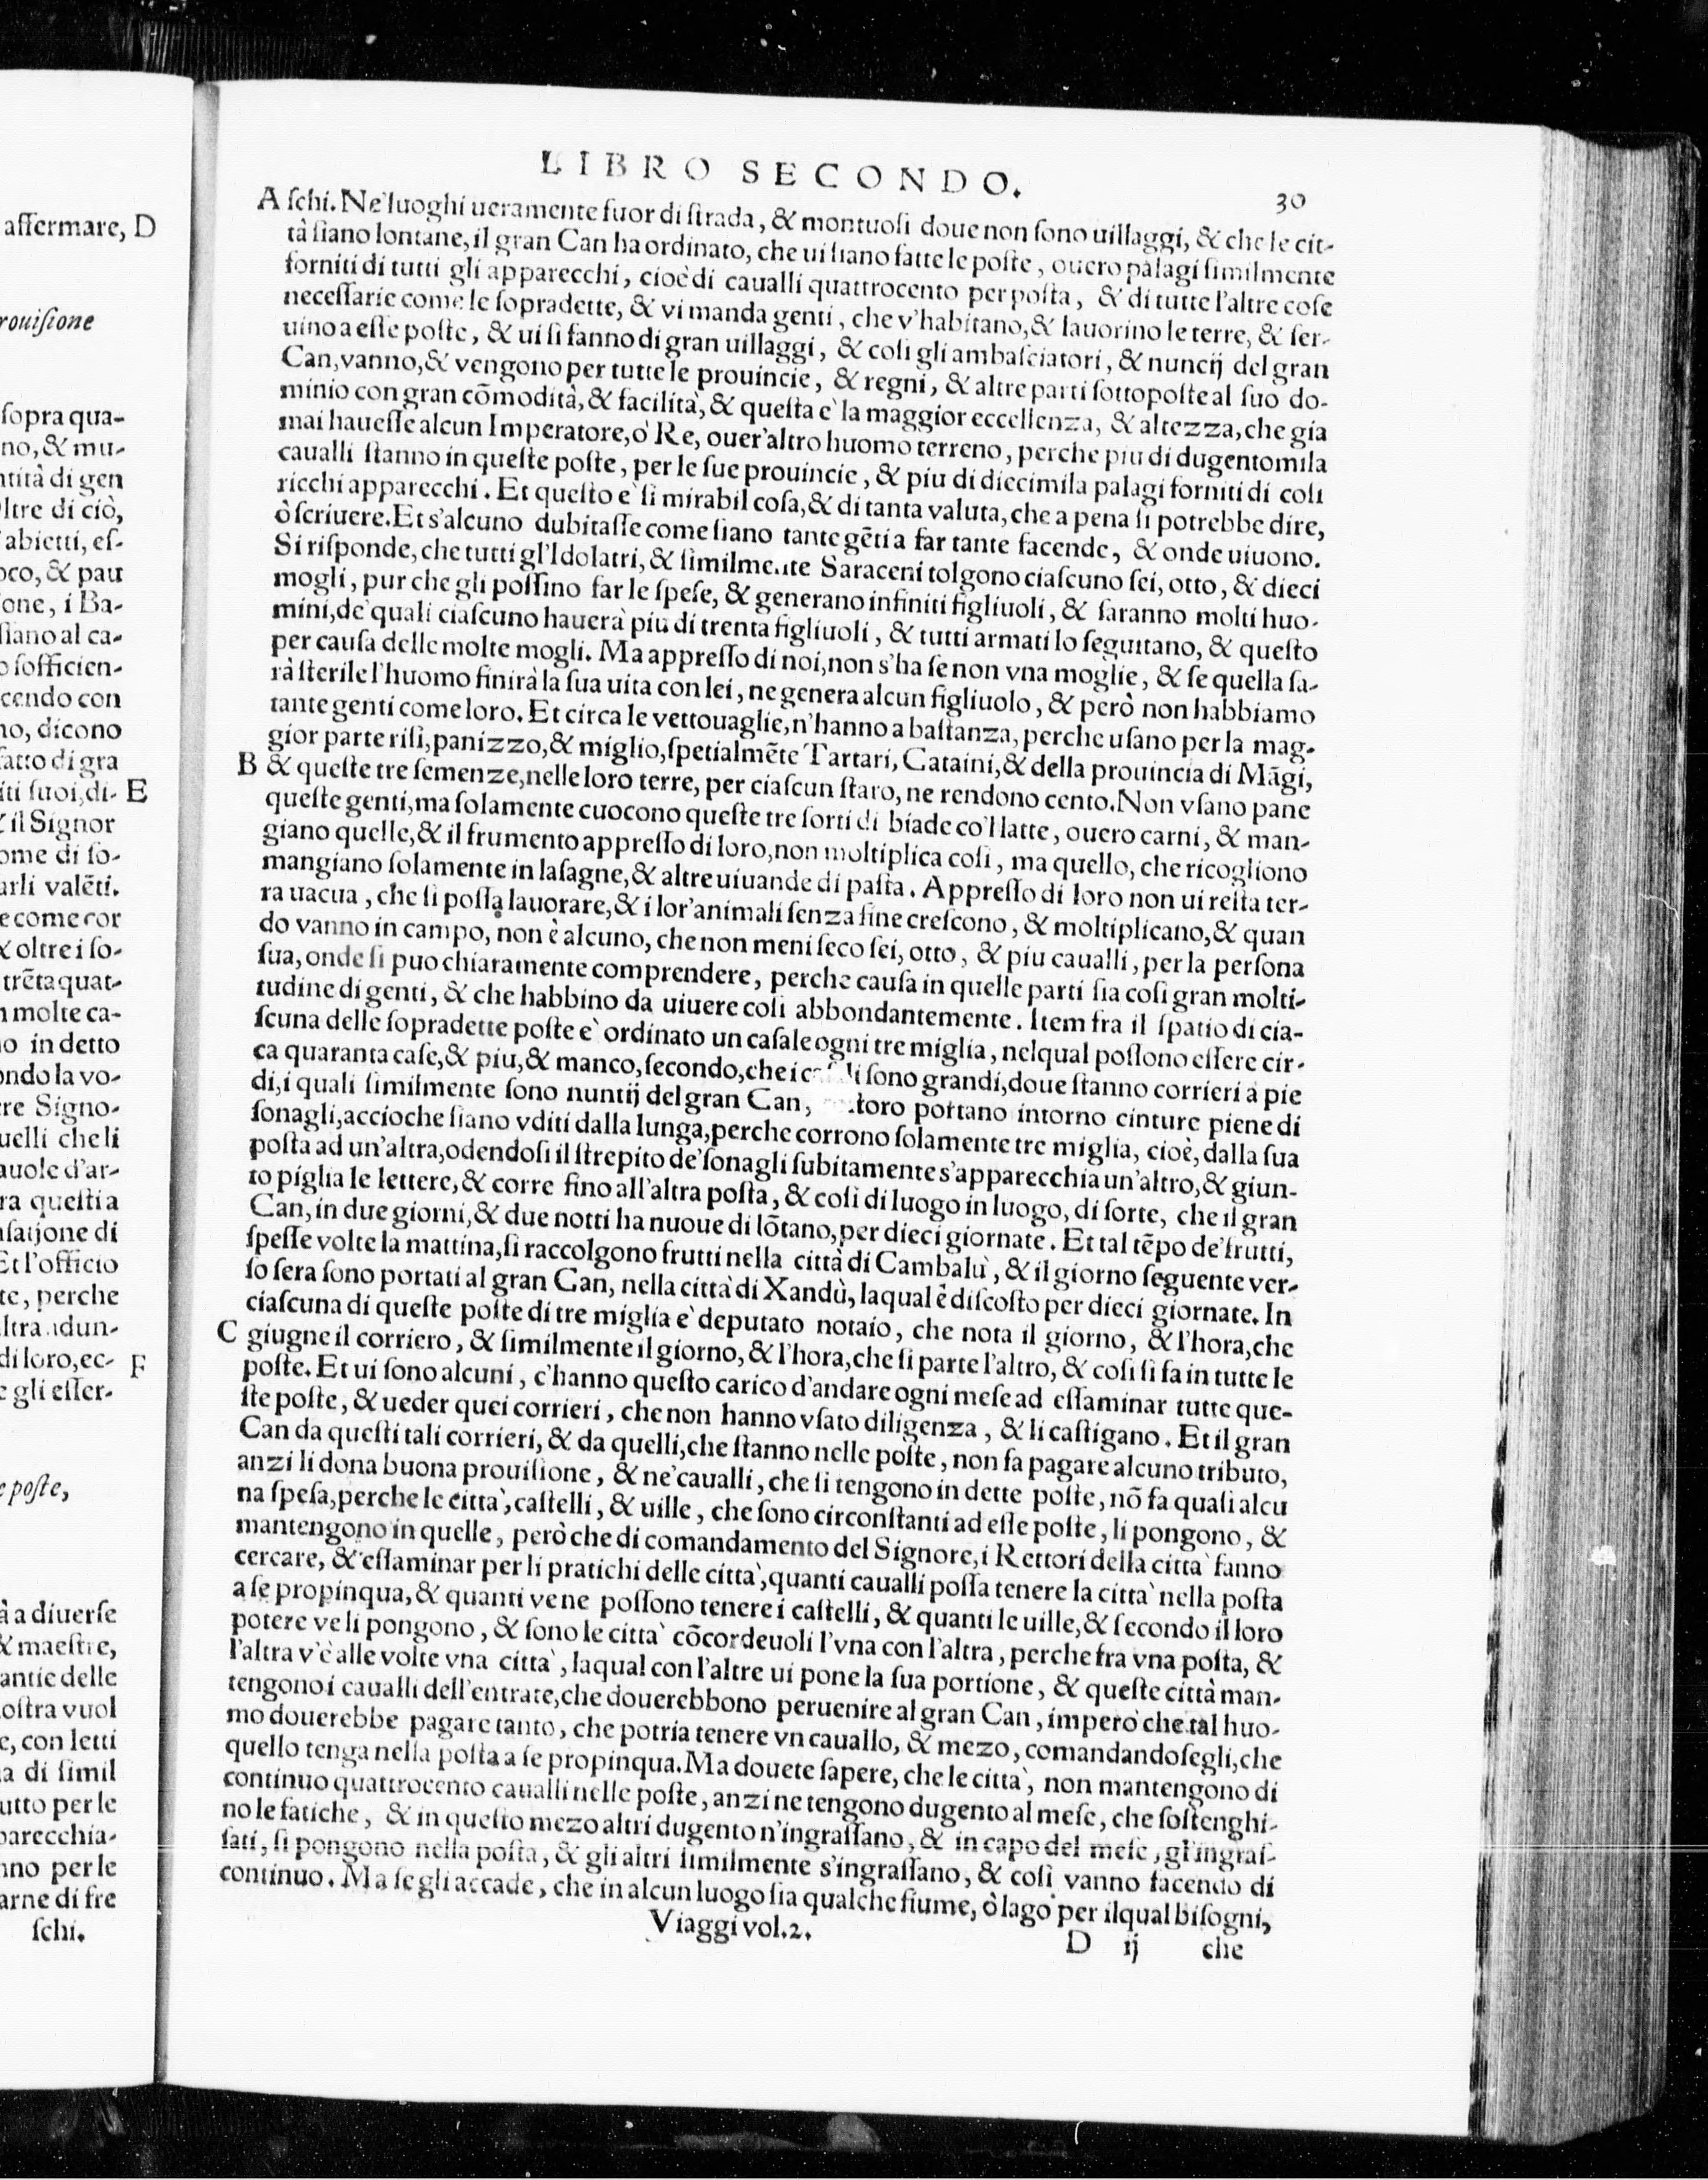 LIBRO SECONDO.
30
A ſchi. Ne'luoghi ueramente fuor di ſtrada, & montuoſi doue non ſono uillaggi, & che le cit-
tà ſiano lontane, il gran Can ha ordinato, che ui ſiano fatte le poſte, ouero palagi ſimilmente
forniti di tutti gli apparecchi, cioè di caualli quattrocento per poſta, & di tutte l'altre coſe
neceſſarie come le ſopradette, & vi manda genti, che v'habitano, & lauorino le terre, & ſer-
uino a eſſe poſte, & ui ſi fanno di gran uillaggi, & coſi gli ambaſciatori, & nuncij del gran
Can, vanno, & vengono per tutte le prouincie, & regni, & altre parti ſottopoſte al ſuo do-
minio con gran cõmodità, & facilità, & queſta e' la maggior eccellenza, & altezza, che gia
mai haueſſe alcun Imperatore, ò Re, ouer'altro huomo terreno, perche piu di dugentomila
caualli ſtanno in queſte poſte, per le ſue prouincie, & piu di diecimila palagi forniti di coſi
ricchi apparecchi. Et queſto e' ſi mirabil coſa, & di tanta valuta, che a pena ſi potrebbe dire,
ò ſcriuere. Et s'alcuno dubitaſſe come ſiano tante gẽti a far tante facende, & onde uiuono.
Si riſponde, che tutti gl'Idolatri, & ſimilmente Saraceni tolgono ciaſcuno ſei, otto, & dieci
mogli, pur che gli poſſino far le ſpeſe, & generano infiniti figliuoli, & ſaranno molti huo-
mini, de' quali ciaſcuno hauerà piu di trenta figliuoli, & tutti armati lo ſeguitano, & queſto
per cauſa delle molte mogli. Ma appreſſo di noi, non s'ha ſe non vna moglie, & ſe quella ſa-
rà ſterile l'huomo finirà la ſua uita con lei, ne genera alcun figliuolo, & però non habbiamo
tante genti come loro. Et circa le vettouaglie, n'hanno a baſtanza, perche uſano per la mag-
gior parte riſi, panizzo, & miglio, ſpetialmẽte Tartari, Cataini, & della prouincia di Mãgi,
B & queſte tre ſemenze, nelle loro terre, per ciaſcun ſtaro, ne rendono cento. Non vſano pane
queſte genti, ma ſolamente cuocono queſte tre ſorti di biade co'l latte, ouero carni, & man-
giano quelle, & il frumento appreſſo di loro, non moltiplica coſi, ma quello, che ricogliono
mangiano ſolamente in laſagne, & altre uiuande di paſta. Appreſſo di loro non ui reſta ter-
ra uacua, che ſi poſſa lauorare, & i lor'animali ſenza fine creſcono, & moltiplicano, & quan
do vanno in campo, non è alcuno, che non meni ſeco ſei, otto, & piu caualli, per la perſona
ſua, onde ſi puo chiaramente comprendere, perche cauſa in quelle parti ſia coſi gran molti-
tudine di genti, & che habbino da uiuere coſi abbondantemente. Item fra il ſpatio di cia-
ſcuna delle ſopradette poſte e' ordinato un caſale ogni tre miglia, nelqual poſſono eſſere cir-
ca quaranta caſe, & piu, & manco, ſecondo, che i ſono grandi, doue ſtanno corrieri a pie
di, i quali ſimilmente ſono nuntij del gran Can, portano intorno cinture piene di
ſonagli, accioche ſiano vditi dalla lunga, perche corrono ſolamente tre miglia, cioè, dalla ſua
poſta ad un'altra, odendoſi il ſtrepito de'ſonagli ſubitamente s'apparecchia un'altro, & giun-
to piglia le lettere, & corre fino all'altra poſta, & coſi di luogo in luogo, di ſorte, che il gran
Can, in due giorni, & due notti ha nuoue di lõtano, per dieci giornate. Et tal tẽpo de'frutti,
ſpeſſe volte la mattina, ſi raccolgono frutti nella città di Cambalù, & il giorno ſeguente ver-
ſo ſera ſono portati al gran Can, nella città di Xandù, laqual è diſcoſto per dieci giornate. In
ciaſcuna di queſte poſte di tre miglia e' deputato notaio, che nota il giorno, & l'hora, che
C giugne il corriero, & ſimilmente il giorno, & l'hora, che ſi parte l'altro, & coſi ſi fa in tutte le
poſte. Et ui ſono alcuni, c'hanno queſto carico d'andare ogni meſe ad eſſaminar tutte que-
ſte poſte, & ueder quei corrieri, che non hanno vſato diligenza, & li caſtigano. Et il gran
Can da queſti tali corrieri, & da quelli, che ſtanno nelle poſte, non fa pagare alcuno tributo,
anzi li dona buona prouiſione, & ne'caualli, che ſi tengono in dette poſte, nõ fa quaſi alcu
na ſpeſa, perche le città, caſtelli, & uille, che ſono circonſtanti ad eſſe poſte, li pongono, &
mantengono in quelle, però che di comandamento del Signore, i Rettori della città fanno
cercare, & eſſaminar per li pratichi delle città, quanti caualli poſſa tenere la città nella poſta
a ſe propinqua, & quanti ve ne poſſono tenere i caſtelli, & quanti le uille, & ſecondo il loro
potere ve li pongono, & ſono le città cõcordeuoli l'vna con l'altra, perche fra vna poſta, &
l'altra v'è alle volte vna città, laqual con l'altre ui pone la ſua portione, & queſte città man-
tengono i caualli dell'entrate, che douerebbono peruenire al gran Can, imperò che tal huo-
mo douerebbe pagare tanto, che potria tenere vn cauallo, & mezo, comandandoſegli, che
quello tenga nella poſta a ſe propinqua. Ma douete ſapere, che le città, non mantengono di
continuo quattrocento caualli nelle poſte, anzi ne tengono dugento al meſe, che ſoſtenghi-
no le fatiche, & in queſto mezo altri dugento n'ingraſſano, & in capo del meſe, gl'ingraſ-
ſati, ſi pongono nella poſta, & gli altri ſimilmente s'ingraſſano, & coſi vanno facendo di
continuo. Ma ſe gli accade, che in alcun luogo ſia qualche fiume, ò lago per ilqual biſogni,
Viaggi vol.2. D ij che
affermare, D
ſopra qua-
no, & mu-
di gen
di ciò,
abietti, eſ-
& pau
i Ba-
ſiano al ca-
con
dicono
di gra
ſuoi, di- E
il Signor
di ſo-
valẽti.
come cor
oltre i ſo-
trẽta quat-
molte ca-
in detto
la vo-
Signo-
che li
d'ar-
queſti a
di
l'officio
perche
di loro, ec- F
gli eſſer-
poſte,
a diuerſe
& maeſtre,
delle
vuol
con letti
di ſimil
per le
per le
di fre
ſchi.